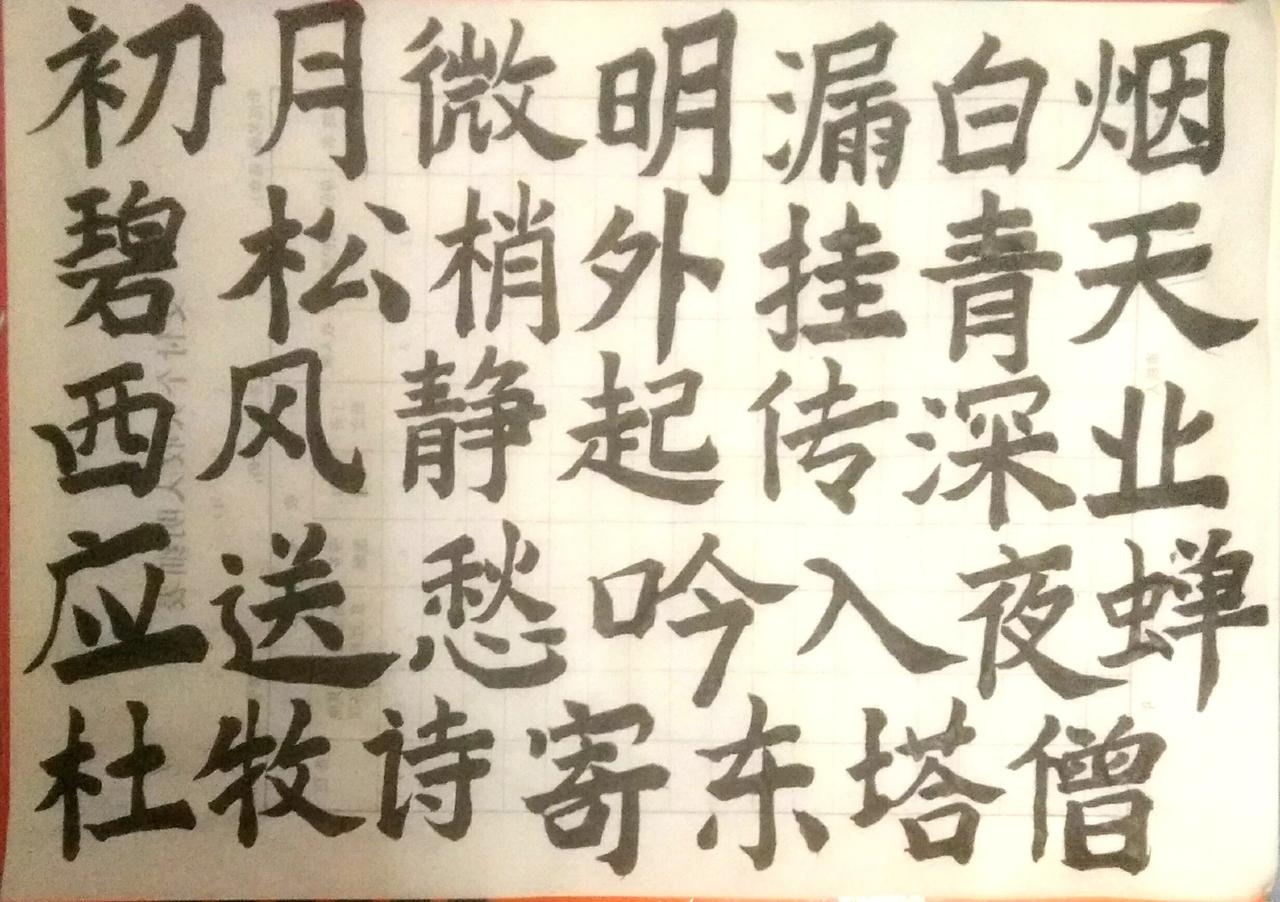 初月微明漏白烟
碧松梢外挂青天
西风静起传深业
应送愁吟入夜蝉
杜牧诗寄东塔僧